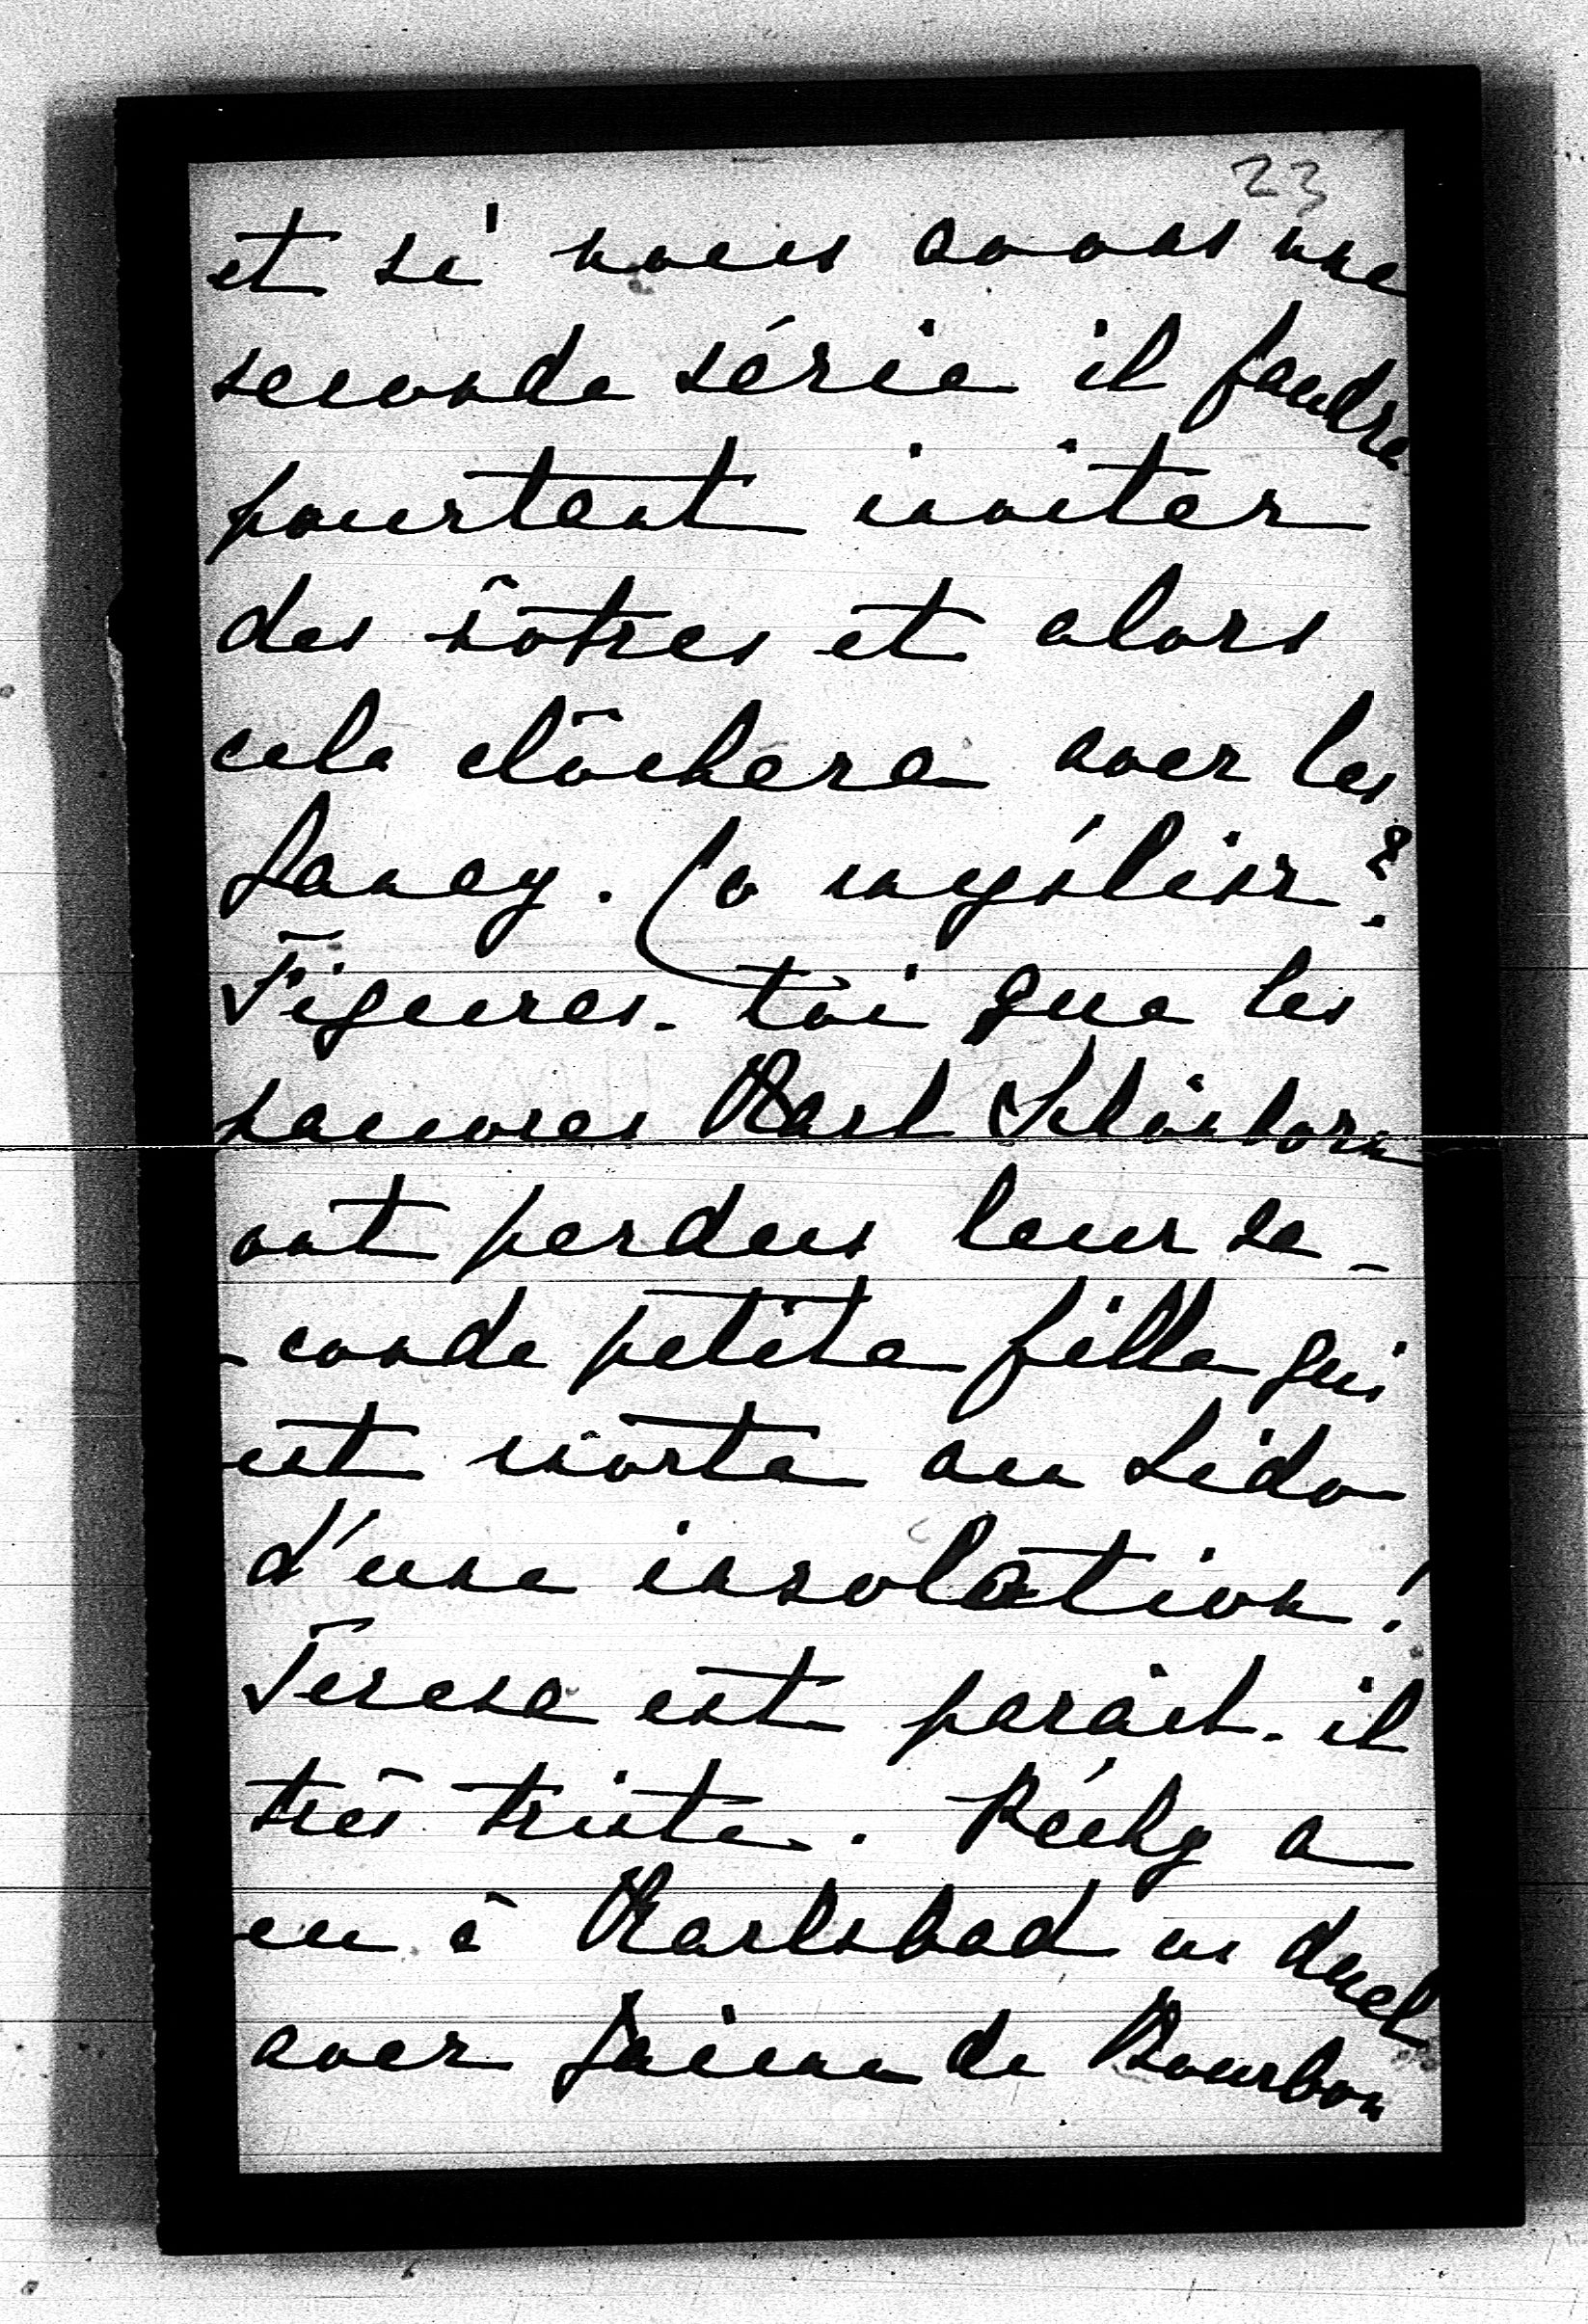 23
et si nous avons une
seconde série il faudra
pourtant inviter
des nôtres et alors
cela clôchera avec les
Fancy.
Figures-toi que les
pauvres Karl Schönborn
ont perdus leur se-
-conde petite fille qui
est morte au Lido
d'une insolation!
Teresa est parait-il
très triste. a
eu à Karlsbad un duel
avec Jaime de Bourbon